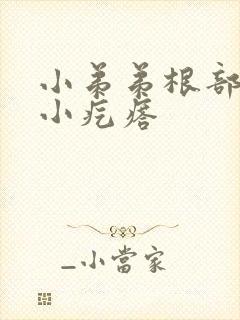 小弟弟根部
小疙瘩
_小當家